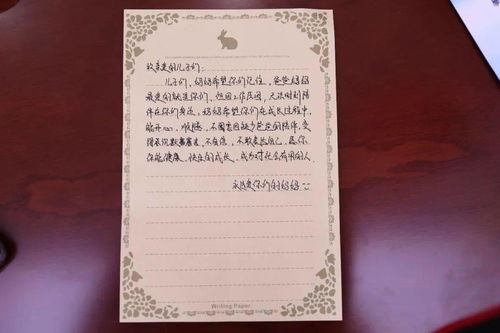 致亲爱的儿子们:
儿子们,妈妈希望你们记住,爸爸妈妈
最爱的就是你们,但因工作原因,无法时刻陪
伴在你们身边,妈妈希望你们在成长过程中,
能开心、快乐,不因缺少爸爸的陪伴,变
得不自信,不敢表达自己,愿你
们能健康、快乐的成长,成为对社会有用的人。
永远爱你们的妈妈
Writing Paper